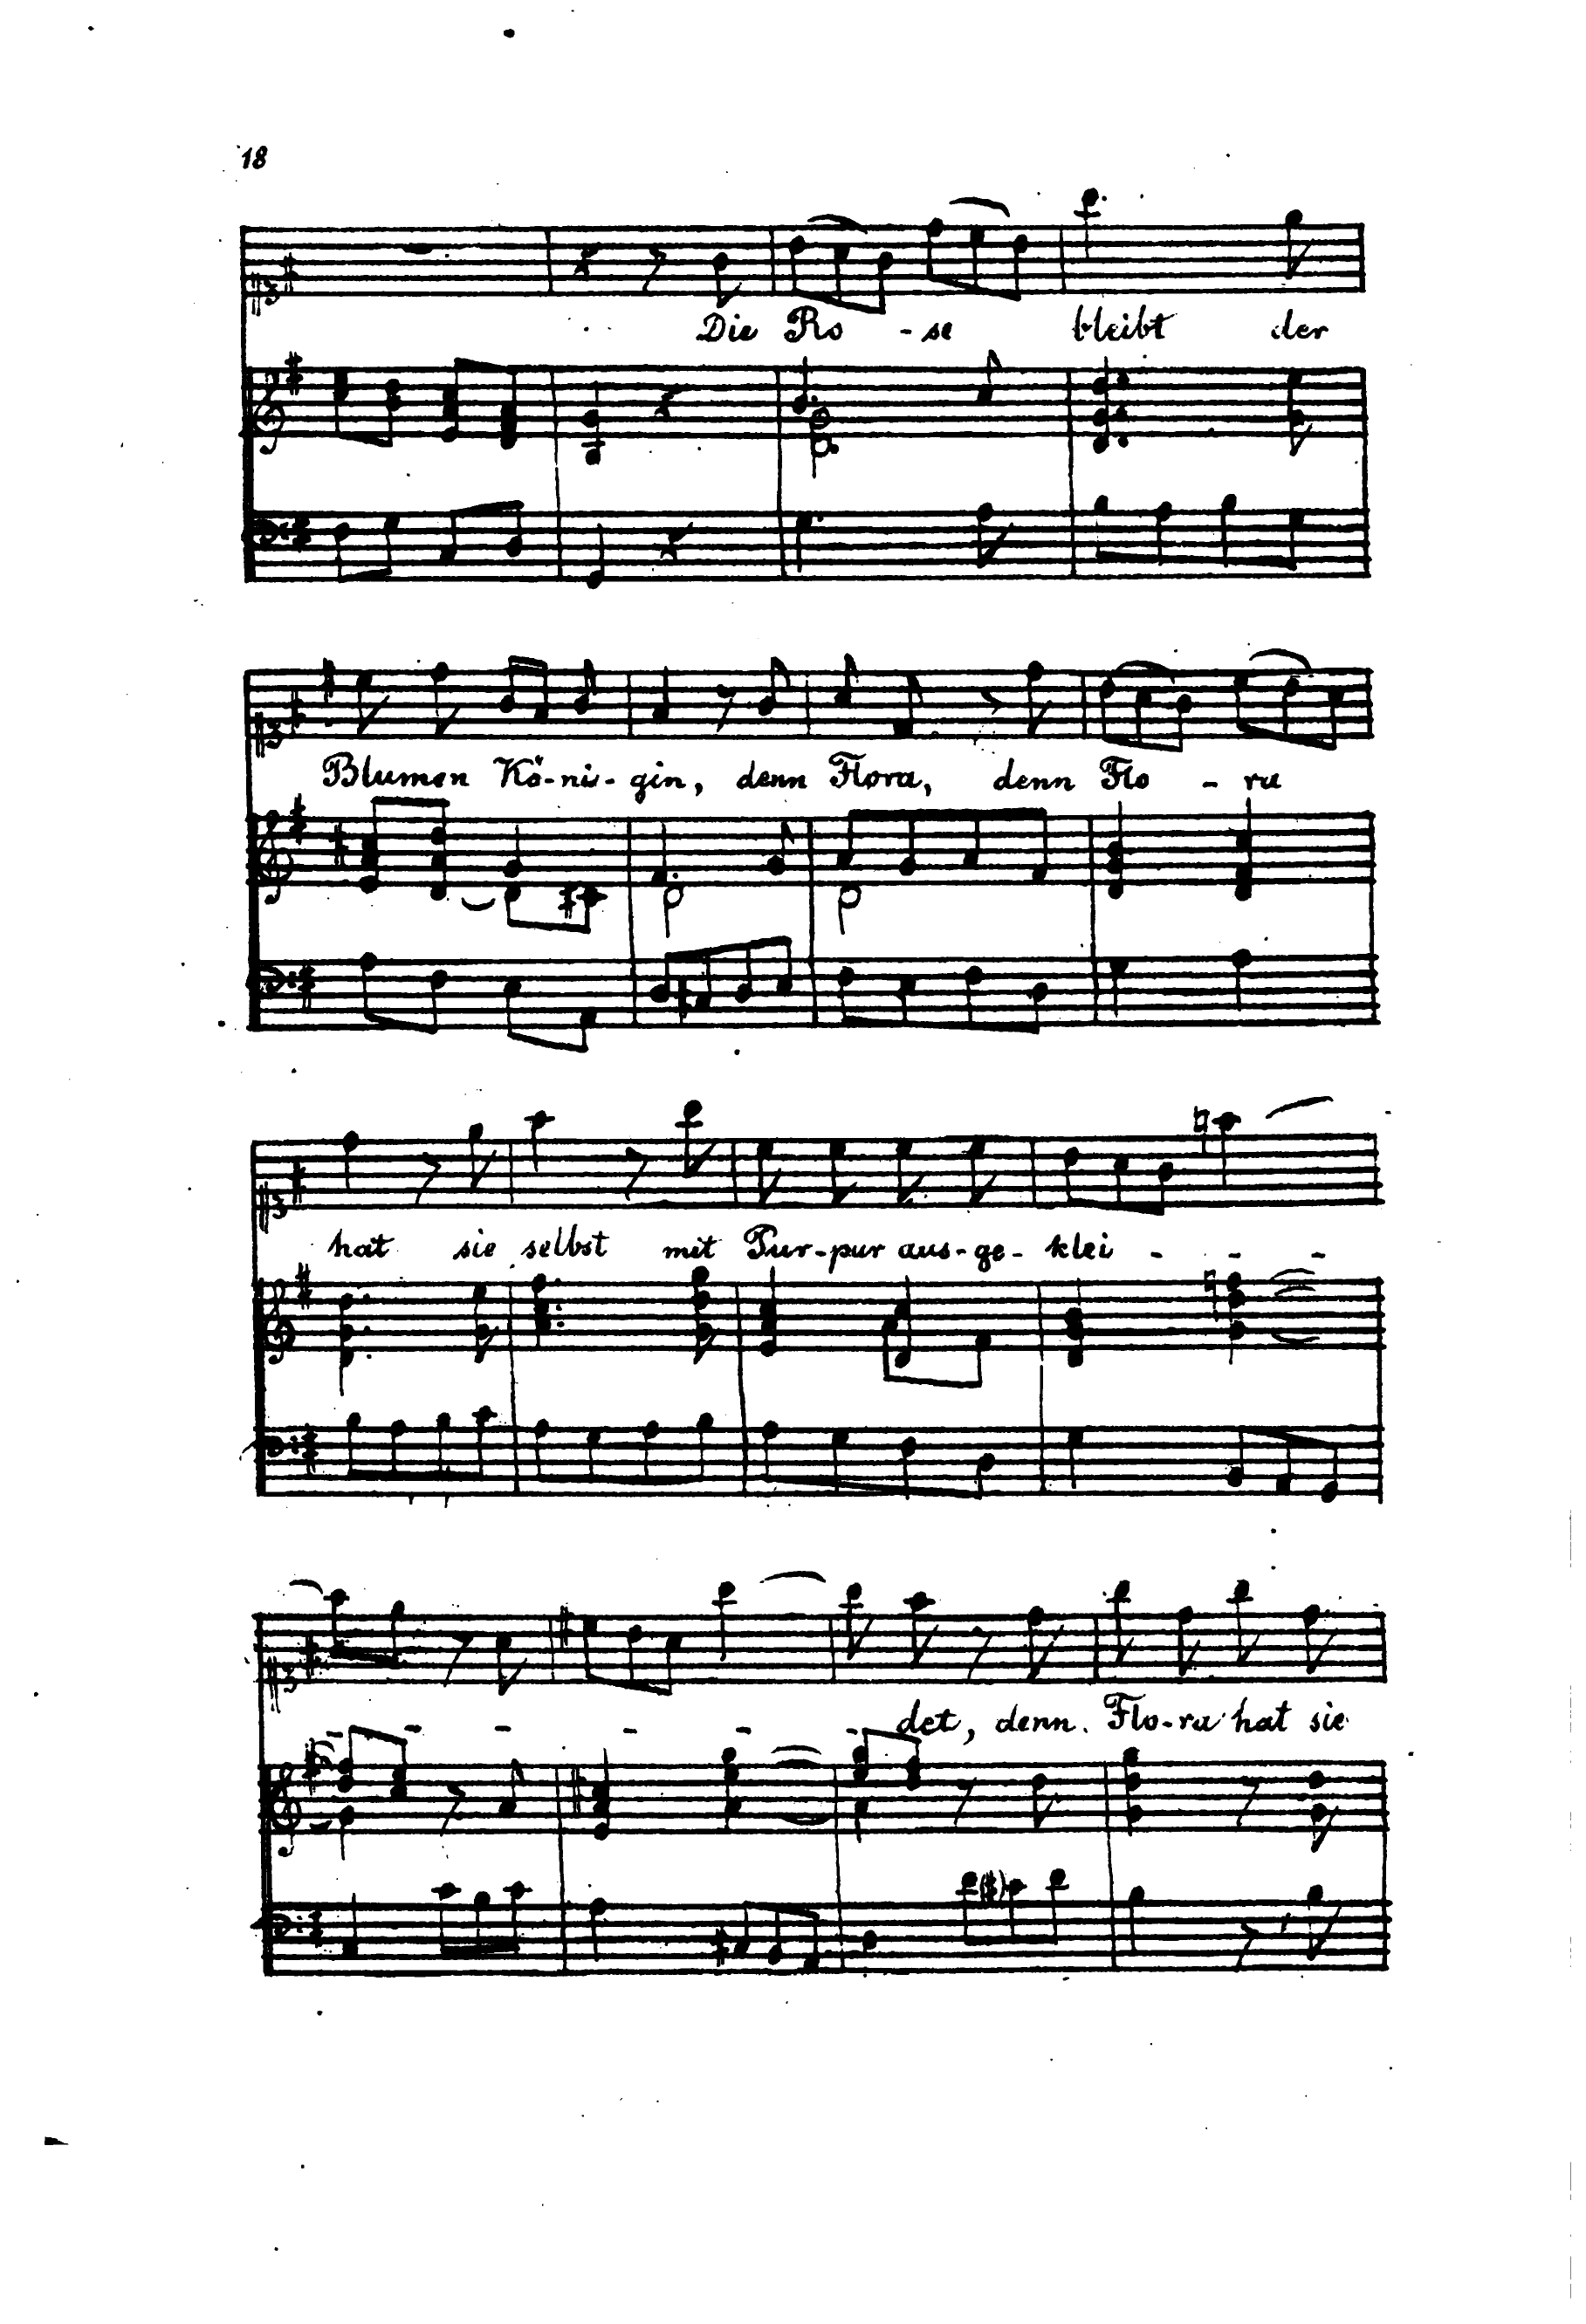 18
Die Ro - se bleibt der
Blumen Kö-ni-gin, denn Flora, denn Flo - ra
hat sie selbst mit Pur-pur aus-ge-klei - - -
- - - - - - det, denn. Flo-ra hat sie